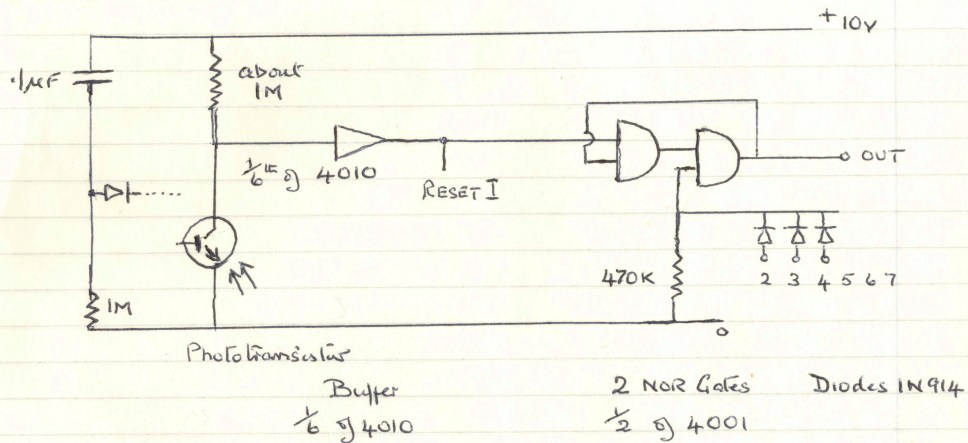 +10V
·1µF
about
1M
1/6th of 4010
RESET I
OUT
1M
470K
2 3 4 5 6 7
o
Phototransistor
Buffer
1/6 of 4010
2 NOR Gates
1/2 of 4001
Diodes 1N914